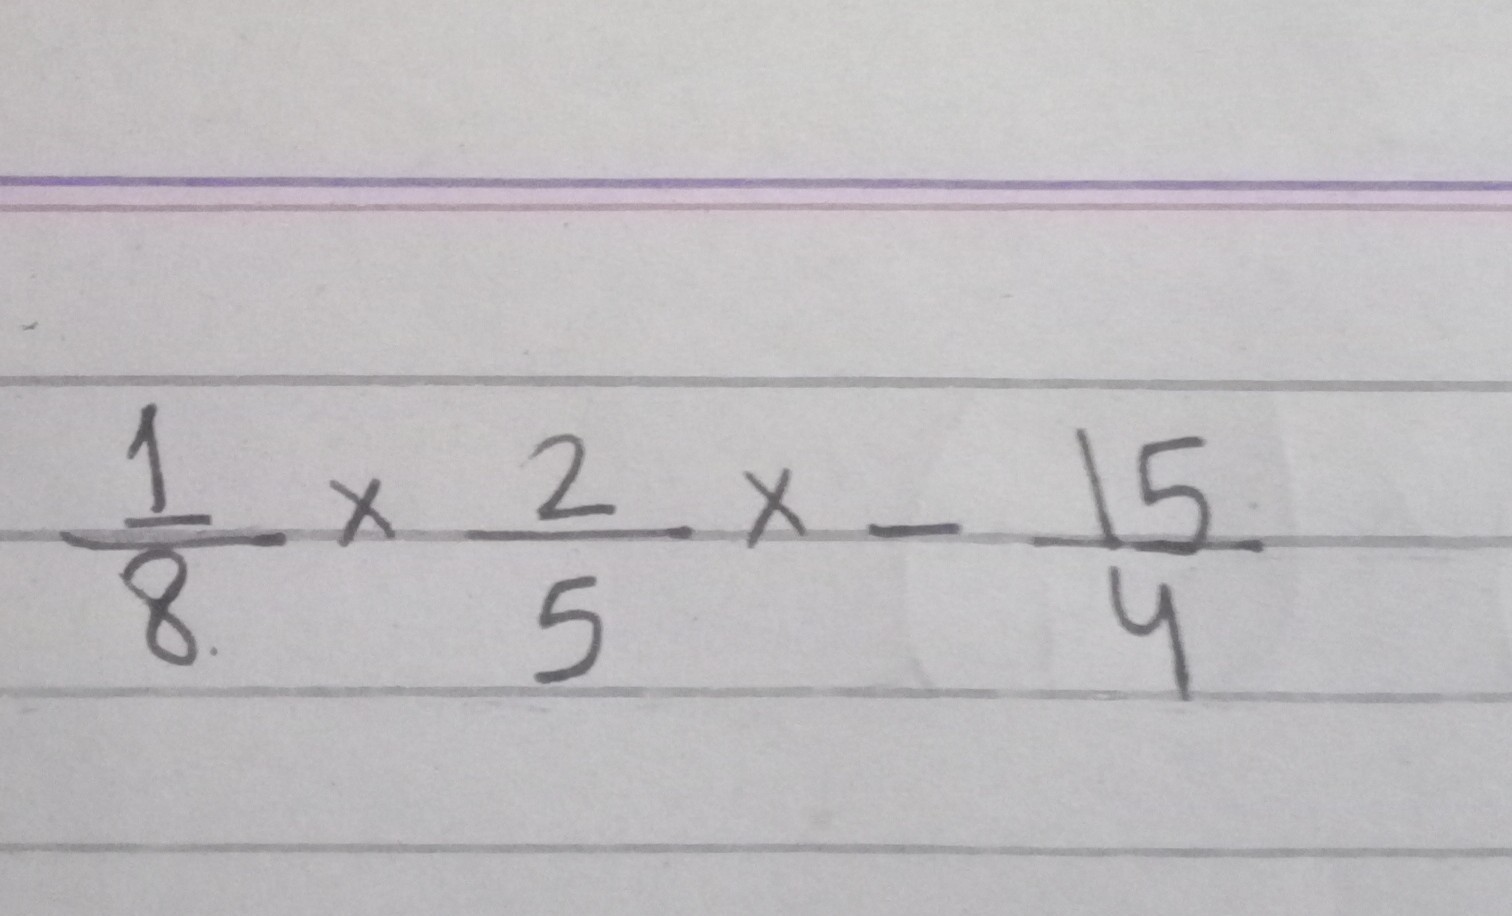 1/8 × 2/5 × - 15/4